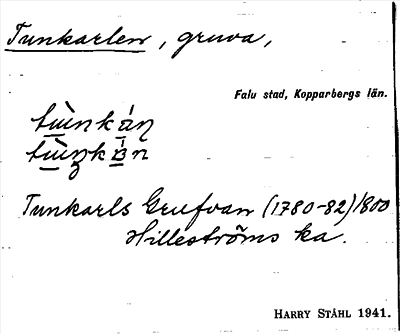 Tunkarlen, gruva,
Falu stad, Kopparbergs län.
Tunkarls Grufvan (1780-82) 1800
Hilleströms ka.
HARRY STÅHL 1941.